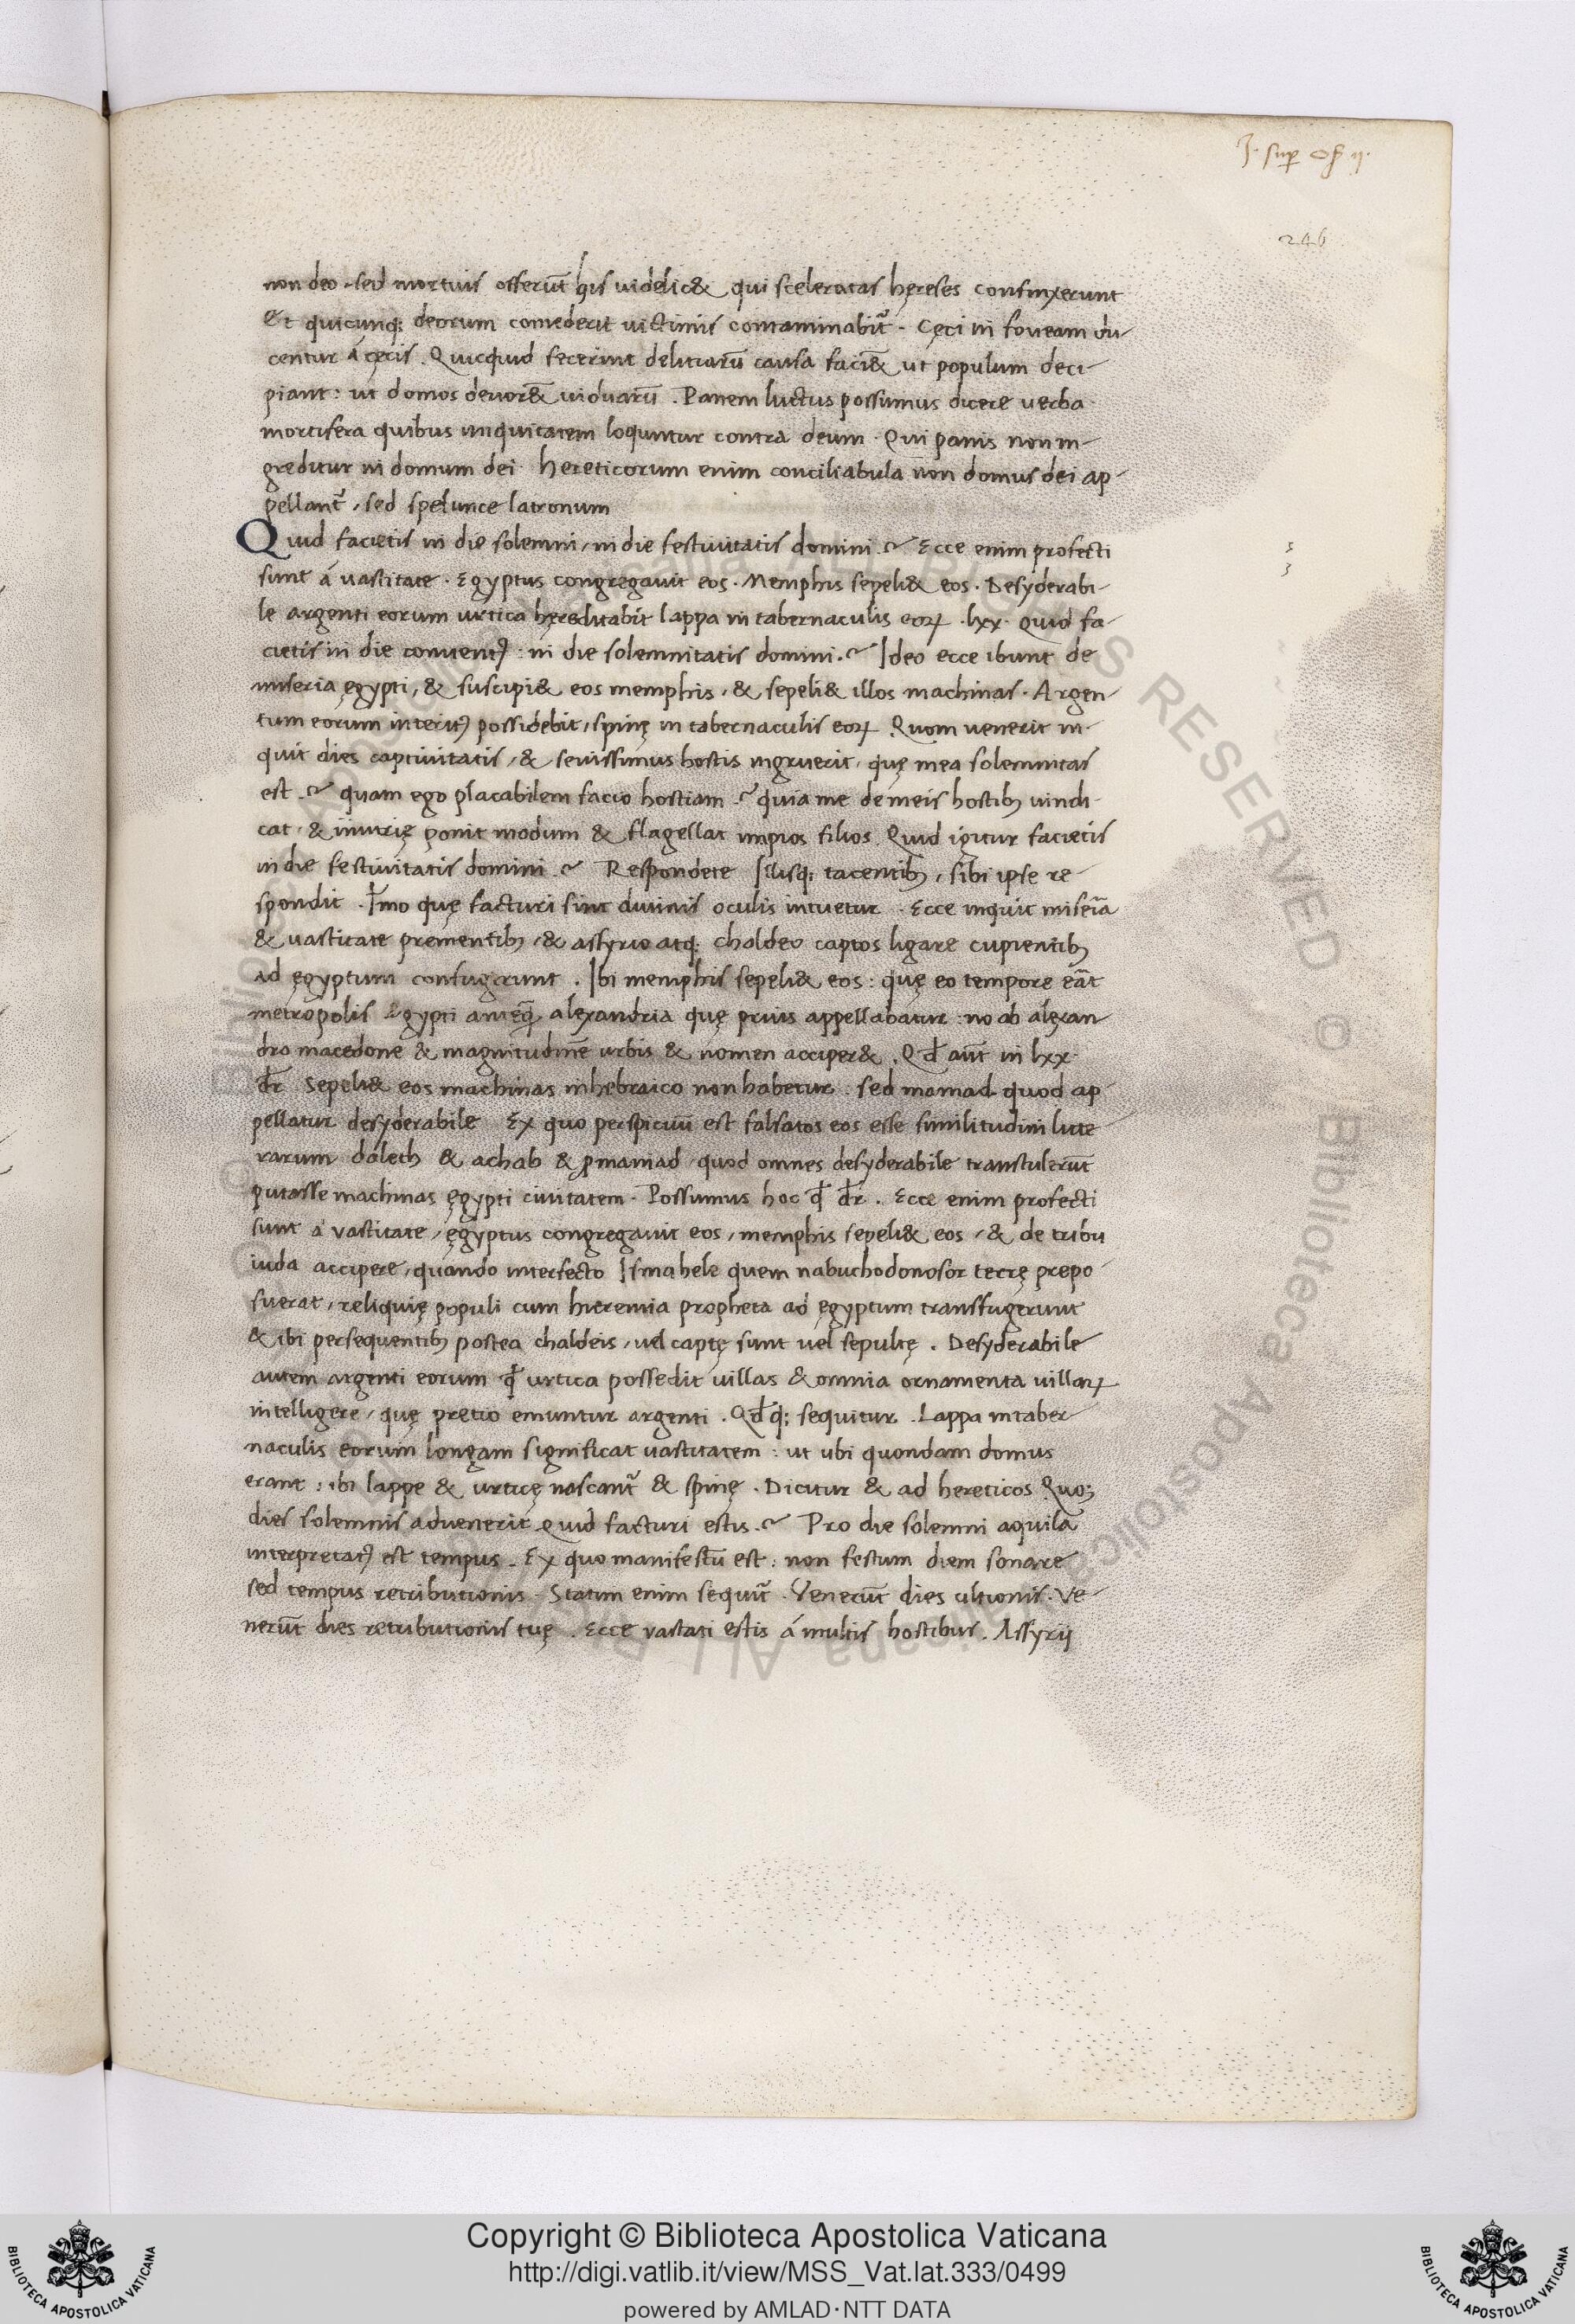 J. sup Oſ ij.
246
non deo. sed mortuis offerūt his uidelic& qui sceleratas hęreses confinxerunt
Et quicunq; deorum comederit uictimis contaminabit᷑. Cęci in foueam du-
centur á cęcis. Quicquid fecerint delitiarū causa faci&̄ ut populum deci-
piant: ut domos deuor&̄ uiduarū. Panem luctus possumus dicere uerba
mortifera quibus iniquitatem loquntur contra deum. Qui panis non in-
greditur in domum dei. hereticorum enim conciliabula non domus dei ap-
pellant᷑, sed spelunce latronum
Quid facietis in die solemni, in die festiuitatis domini.? Ecce enim profecti
sunt á uastitate. Egyptus congregauit eos. Memphis sepeli& eos. Desyderabi-
le argenti eorum urtica hęreditabit lappa in tabernaculis eoꝝ. lxx. Quid fa-
cietis in die conuentꝰ: in die solemnitatis domini.? Ideo ecce ibunt de
miseria ęgypti, & suscipi& eos memphis, & sepeli& illos machinas. Argen-
tum eorum interitꝰ possidebit, spinę in tabernaculis eoꝝ Quom uenerit in-
quit dies captiuitatis, & seuissimus hostis ingruerit, quę mea solemnitas
est.? quam ego placabilem facio hostiam? quia me de meis hostibꝫ uindi-
cat, & iniurię ponit modum & flagellat impios filios. Quid igitur facietis
in die festiuitatis domini.? Respondete Illisq; tacentibꝫ, sibi ipse re-
spondit. Imo quę facturi sint diuinis oculis intuetur. Ecce inquit miseia̅
& uastitate prementibꝫ, & assyrio atq; chaldeo captos ligare cupientibꝫ
ad ęgyptum confugerunt. Ibi memphis sepeli& eos: quę eo tempore ea̅t
metropolis Egypti anteq̃ alexandria quę prius appellabatur: no ab alexan
dro macedone & magnitudinē urbis & nomen acciper&. Qd̄ aūt in lxx.
dr̄ sepeli& eos machinas in hebraico non habetur. sed mamad. quod ap
pellatur desyderabile Ex quo perspicuū est falsatos eos esse similitudini litte
rarum daleth & achab & ꝓ mamad, quod omnes desyderabile transtulerūt
putasse machinas ęgypti ciuitatem. Possumus hoc qd̄ dr̄. Ecce enim profecti
sunt á uastitate, ęgyptus congregauit eos, memphis sepeli& eos, & de tribu
iuda accipere, quando interfecto Ismahele quem nabuchodonosor terrę prepo
suerat, reliquię populi cum hieremia propheta ad ęgyptum transfugerunt
& ibi persequentibꝫ postea chaldeis, uel captę sunt uel sepultę. Desyderabile
autem argenti eorum qd̄ urtica possedit uillas & omnia ornamenta uillaꝝ
intelligere, quę pretio emuntur argenti. Qd̄q; sequitur. Lappa in taber
naculis eorum longam significat uastitatem: ut ubi quondam domus
erant: ibi lappe & urticę nascant᷑ & spinę. Dicitur & ad hereticos Quoꝫ
dies solemnis aduenerit quid facturi estis.? Pro die solemni aquila
interpretatꝰ est tempus. Ex quo manifestū est: non festum diem sonare
sed tempus retributionis. Statim enim sequit᷑. Venerūt dies ultionis. Ve-
nerūt dies retributionis tuę. Ecce uastati estis á multis hostibus. Assyrij
Copyright © Biblioteca Apostolica Vaticana
http://digi.vatlib.it/view/MSS_Vat.lat.333/0499
powered by AMLAD·NTT DATA
BIBLIOTECA APOSTOLICA VATICANA
BIBLIOTECA APOSTOLICA VATICANA